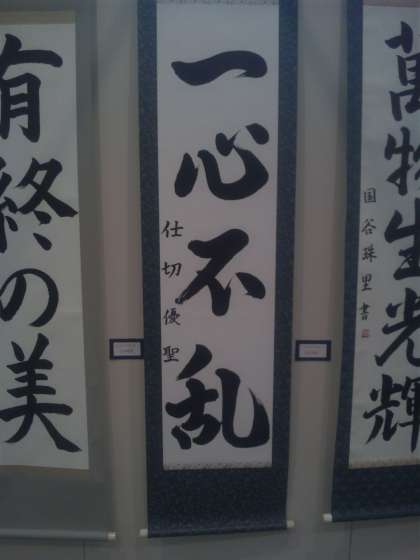 萬物生光輝
国谷珠里書
一心不乱
仕切優聖
有終の美